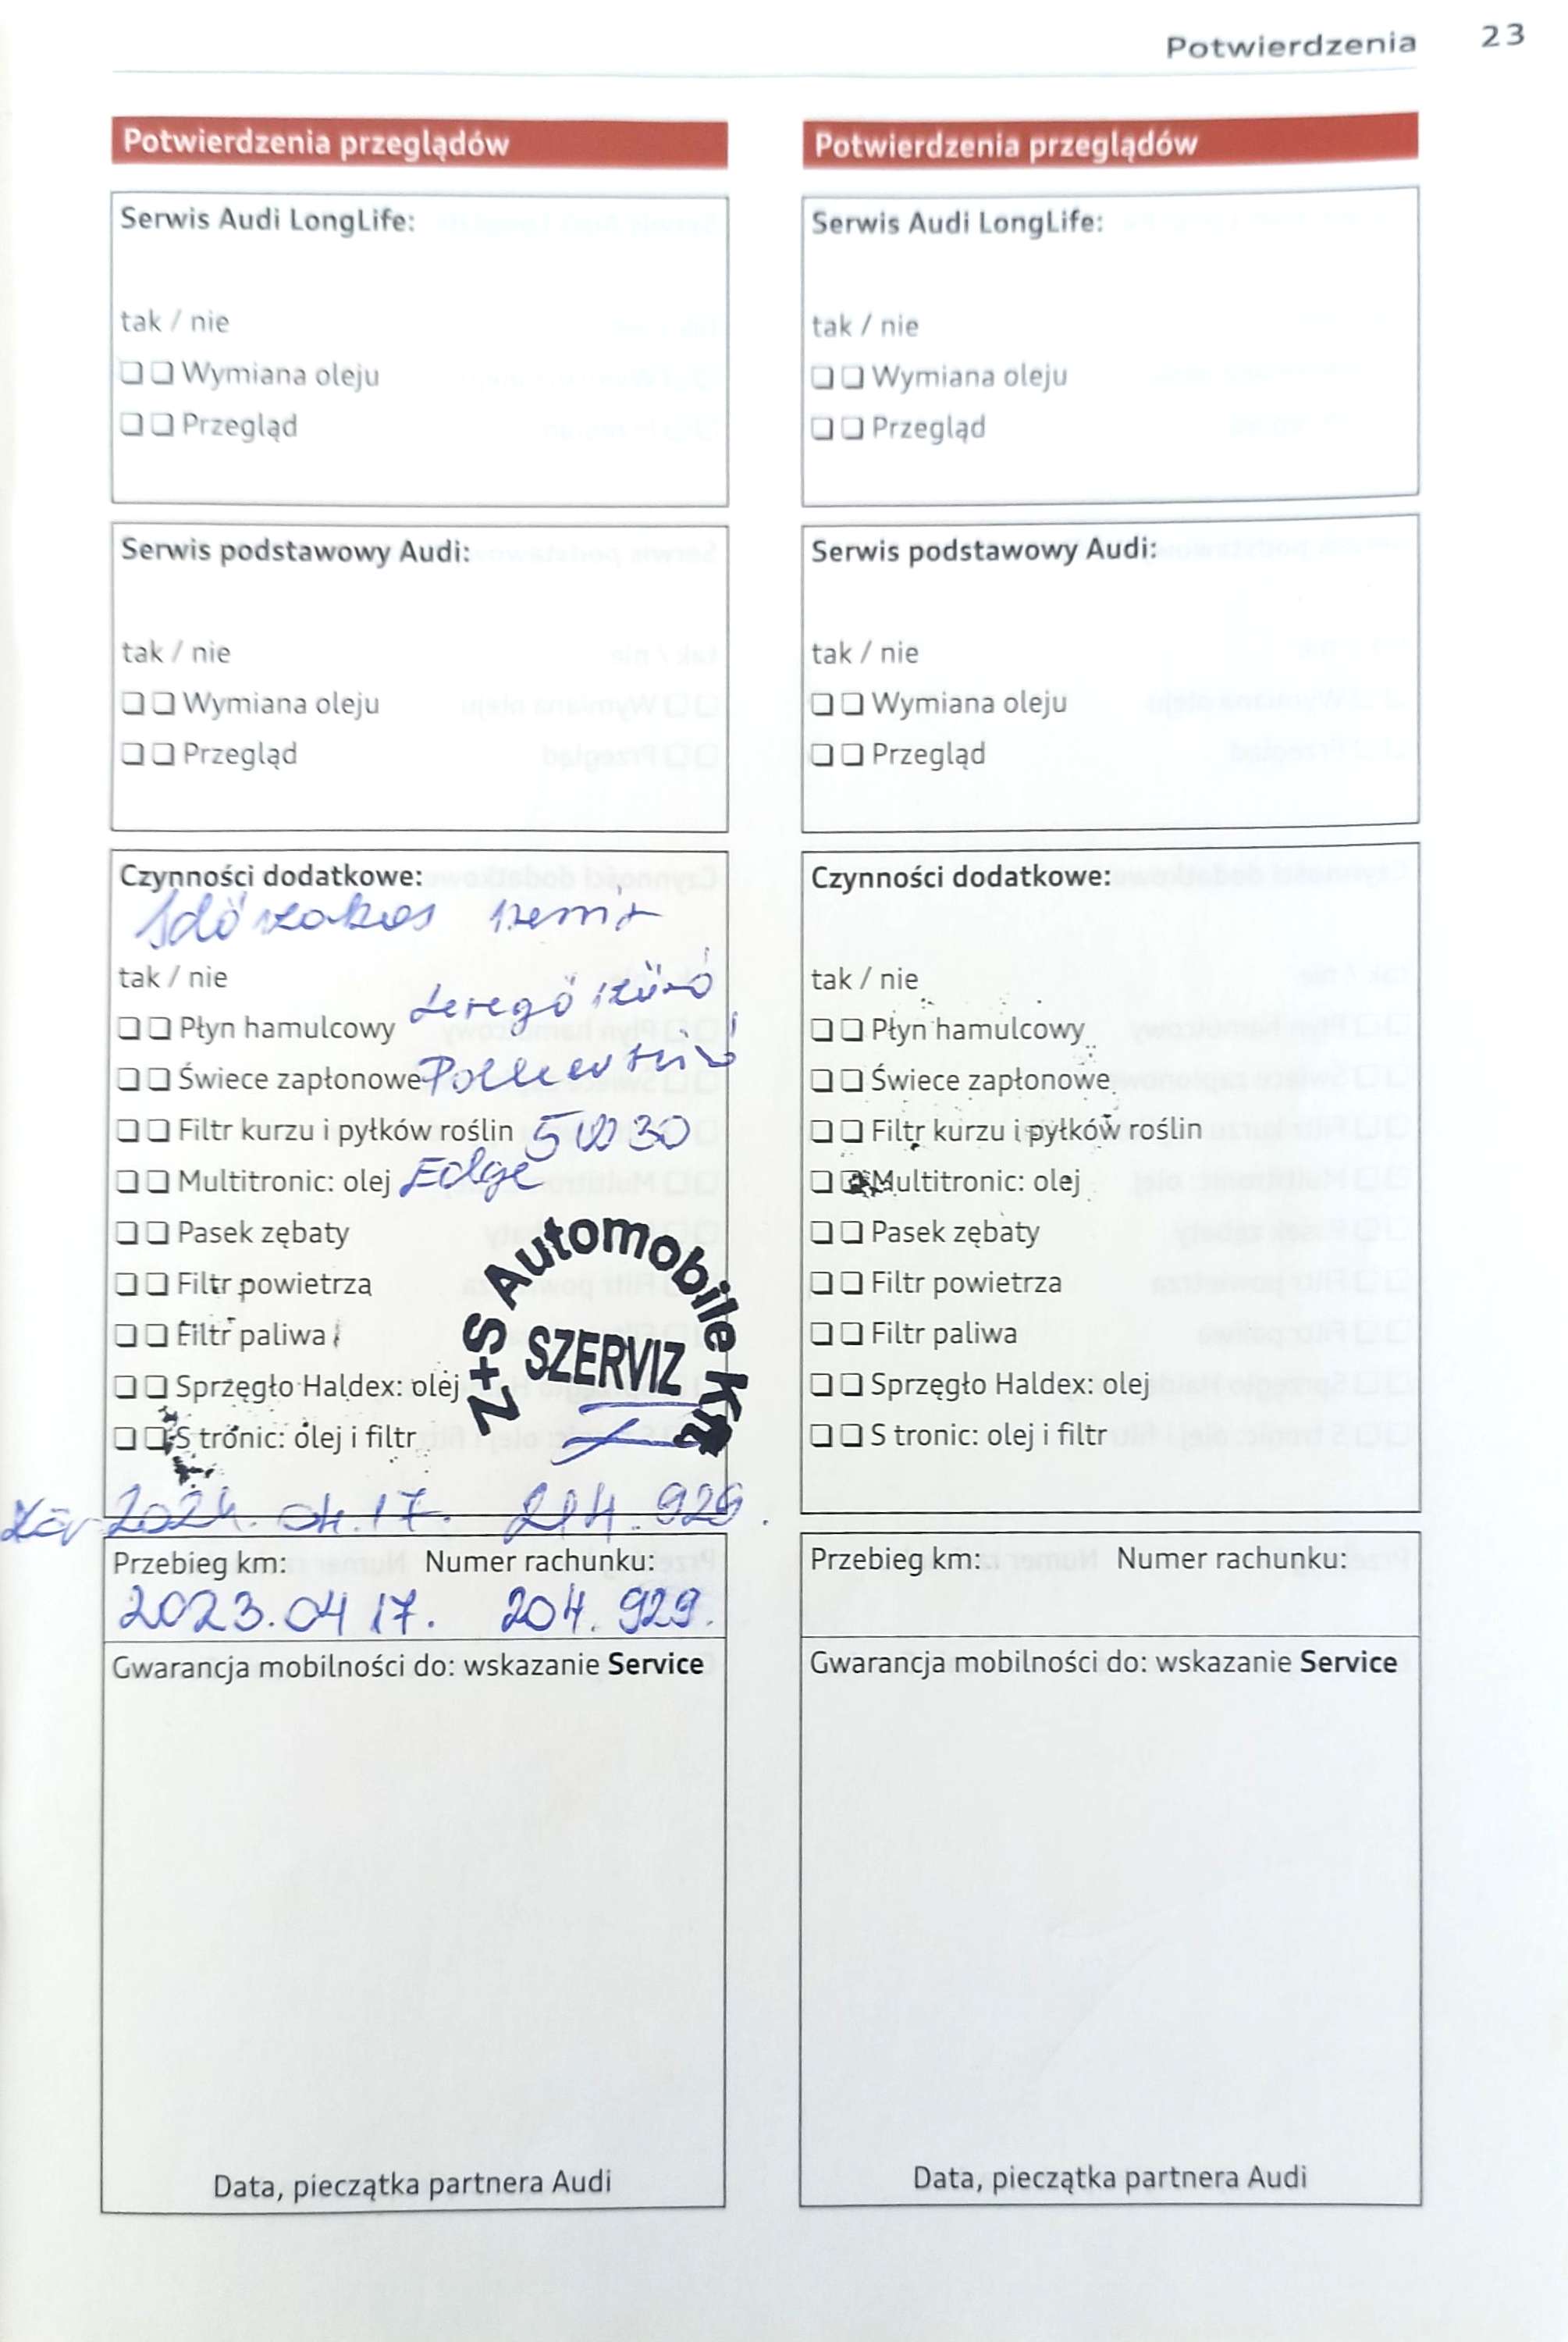 Potwierdzenia 23
Potwierdzenia przeglądów
Serwis Audi LongLife:
tak / nie
❏ ❏ Wymiana oleju
❏ ❏ Przegląd
Serwis podstawowy Audi:
tak / nie
❏ ❏ Wymiana oleju
❏ ❏ Przegląd
Czynności dodatkowe:
Időszakos
tak / nie
Levegő szűrő
❏ ❏ Płyn hamulcowy
❏ ❏ Świece zapłonowe
❏ ❏ Filtr kurzu i pyłków roślin 5W30
❏ ❏ Multitronic: olej Edge
❏ ❏ Pasek zębaty
❏ ❏ Filtr powietrza
❏ ❏ Filtr paliwa
❏ ❏ Sprzęgło Haldex: olej
❏ ❏ S tronic: olej i filtr
Z+S Automobile Kft
SZERVIZ
Köv 2024.04.17. 214.929.
Przebieg km: Numer rachunku:
2023.04 17. 204.929.
Gwarancja mobilności do: wskazanie Service
Data, pieczątka partnera Audi
Potwierdzenia przeglądów
Serwis Audi LongLife:
tak / nie
❏ ❏ Wymiana oleju
❏ ❏ Przegląd
Serwis podstawowy Audi:
tak / nie
❏ ❏ Wymiana oleju
❏ ❏ Przegląd
Czynności dodatkowe:
tak / nie
❏ ❏ Płyn hamulcowy
❏ ❏ Świece zapłonowe
❏ ❏ Filtr kurzu i pyłków roślin
❏ ❏ Multitronic: olej
❏ ❏ Pasek zębaty
❏ ❏ Filtr powietrza
❏ ❏ Filtr paliwa
❏ ❏ Sprzęgło Haldex: olej
❏ ❏ S tronic: olej i filtr
Przebieg km: Numer rachunku:
Gwarancja mobilności do: wskazanie Service
Data, pieczątka partnera Audi